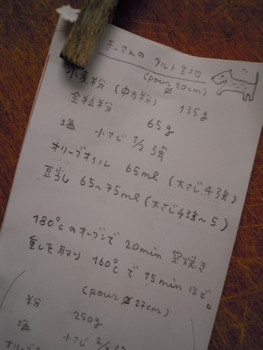 チーさんの タルト生地
(pour 20cm)
小麦粉 (中力粉) 135g
全粒粉 65g
塩 小さじ 1/2 弱
オリーブオイル 65ml (大さじ4弱)
豆乳 65~75ml (大さじ4弱~5)
180℃のオーブンで 20min 空焼き
160℃で 15min ほど。
(pour ø 27cm)
粉 250g
塩 小さじ